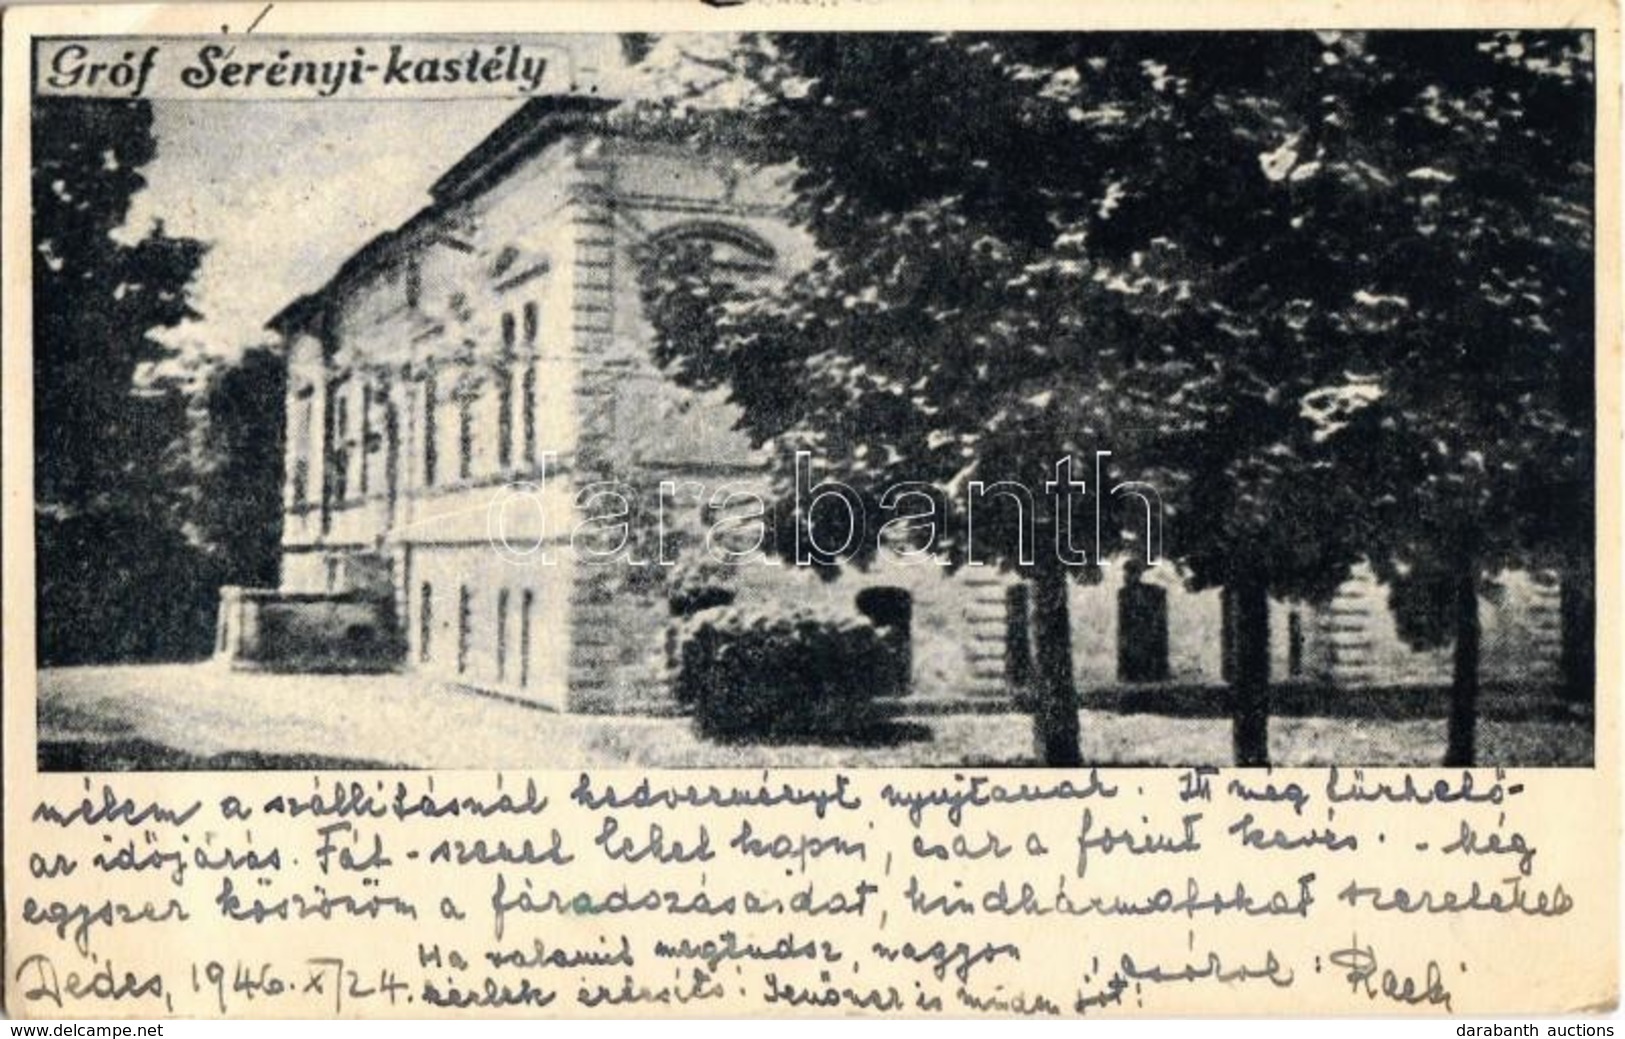 Gróf Serényi-kastély
darabanth
nékem a szállításnál kedvezményt nyujtanak. Itt még türhető
az időjárás. Fát - szenet lehet kapni, csak a forint kevés. - Még
egyszer köszönöm a fáradozásaidat, kindhármatokat szeretettel
Ha valamit megtudsz, nagyon
csókol:
Dédes, 1946. X/24. kérlek értesíts! Jenőnek is minden jót!
darabanth auctions